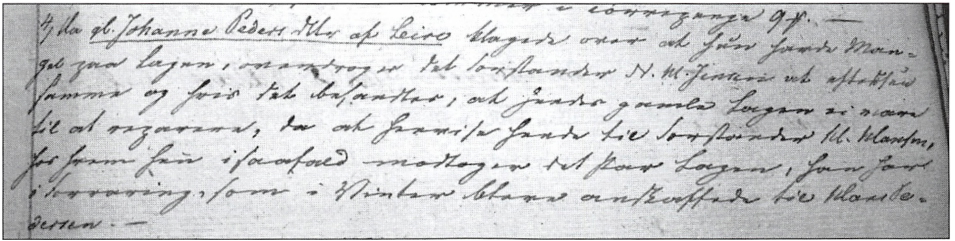 4, Da gl. Johanne Peders Dtr af Leire klagede over at hun havde Man-
gel paa Lagen, overdroges det Forstander N. Kl. Jensen at eftersee
samme og hvis det befandtes, at hendes gamle Lagen ei vare
til at reparere, da at henvise hende til Forstander Kl. Klausen,
hos hvem hun i saafald modtager det Par Lagen, han har
i Forvaring, som i Vinter bleve anskaffede til Klaus Pe-
dersen. —